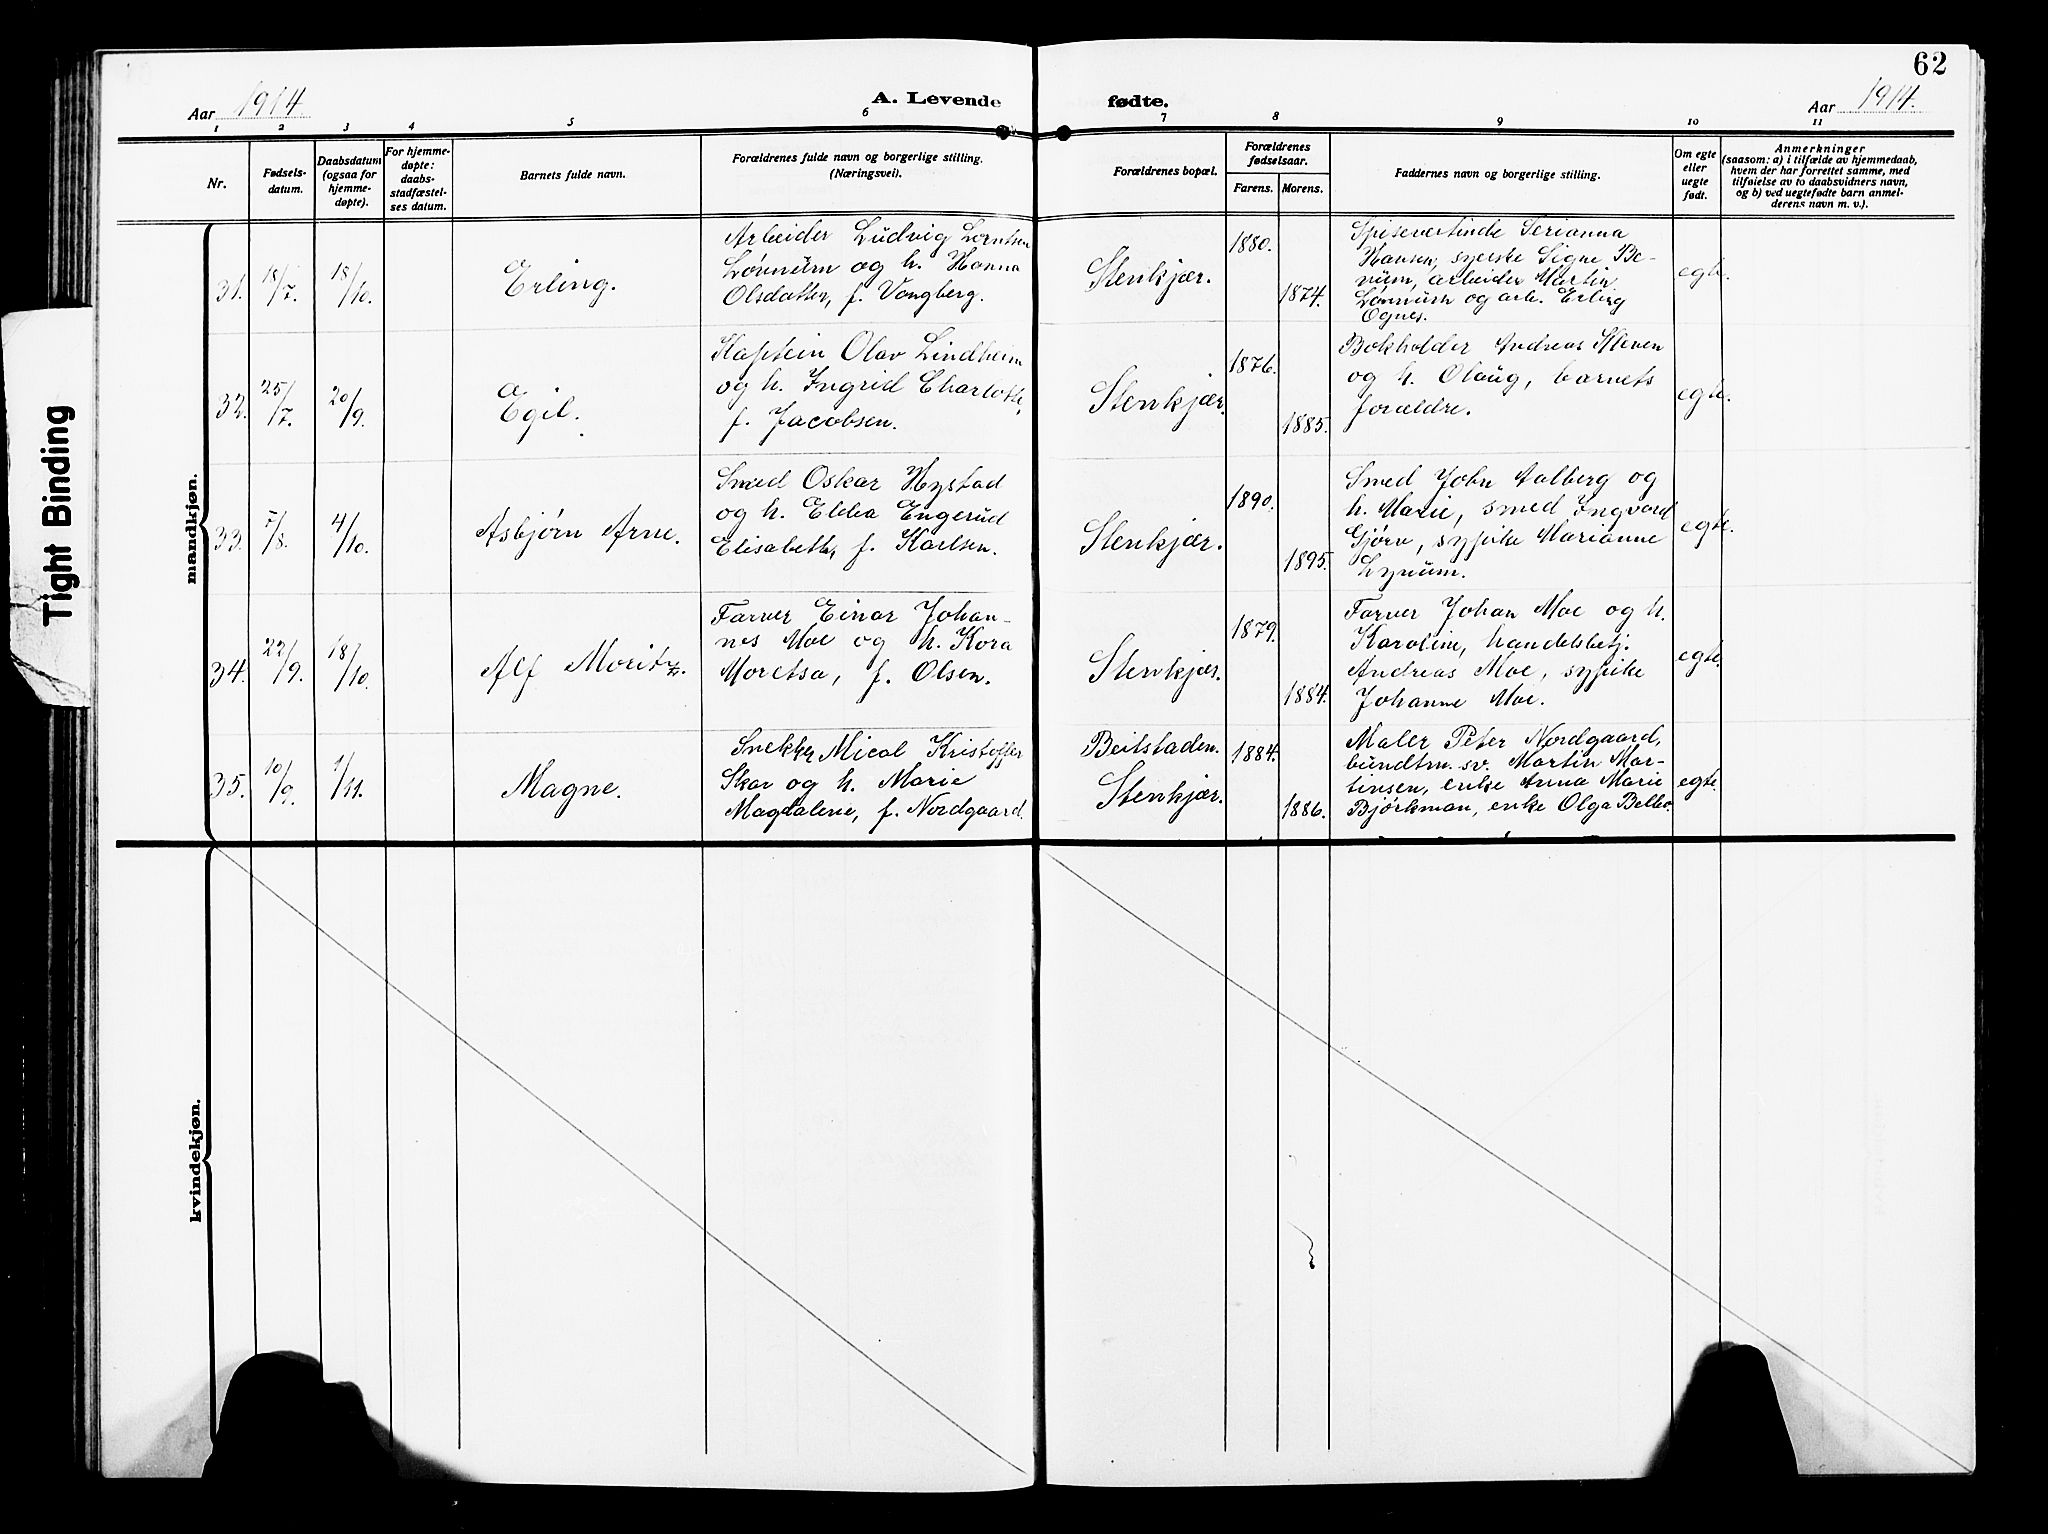 62
Aar 1914
A. Levende fødte.
Aar 1914.
1 2 3 4 5 6 7 8 9 10 11
Nr.
Fødsels-
datum.
Daabsdatum
(ogsaa for
hjemme-
døpte).
For hjemme-
døpte:
daabs-
stadfæstel-
ses datum.
Barnets fulde navn.
Forældrenes fulde navn og borgerlige stilling.
(Næringsvei).
Forældrenes bopæl.
Forældrenes
fødselsaar.
Farens. Morens.
Faddernes navn og borgerlige stilling.
Om egte
eller
uegte
født.
Anmerkninger
(saasom: a) i tilfælde av hjemmedaab,
hvem der har forrettet samme, med
tilføielse av to daabsvidners navn,
og b) ved uegtefødte barn anmel-
derens navn m. v.).
mandkjøn.
31.
18/7.
18/10.
Erling.
Arbeider Ludvig Lorntsen
Lønnum og h. Hanna
Olsdatter, f. Vongberg.
Stenkjær.
1880.
1874.
Spisevertinde Serianna
Hansen, syerske Signe Be-
num, arbeider Martin
Lønnum og arb. Erling
Ognes.
egte.
32.
25/7.
20/9.
Egil.
Kaptein Olav Lindheim
og h. Ingrid Charlotte,
f. Jacobsen.
Stenkjær.
1876.
1885.
Bokholder Andreas Kleven
og h. Olaug, barnets
forældre.
egte.
33.
7/8.
4/10.
Asbjørn Arne.
Smed Oskar Hystad
og h. Ebba Engerud
Elisabeth, f. Karlsen.
Stenkjær.
1890.
1895.
Smed John Aalberg og
h. Marie, smed Ingvard
Gjørv, sypike Marianne
Lynum.
egte.
34.
22/9.
18/10.
Alf Moritz.
Farver Einar Johan-
nes Moe og h. Kora
Moretsa, f. Olsen.
Stenkjær.
1879.
1884.
Farver Johan Moe og h.
Karoline, handelsbetj.
Andreas Moe, sypike
Johanne Moe.
egte.
35.
10/9.
1/11.
Magne.
Snekker Mical Kristoffer
Skar og h. Marie
Magdalene, f. Nordgaard.
Beitstaden.
Stenkjær.
1884.
1886.
Maler Peter Nordgaard,
bundtm. sv. Martin Mar-
tinsen, enke Anna Marie
Bjørkman, enke Olga Belbo.
egte.
kvindekjøn.
Tight Binding